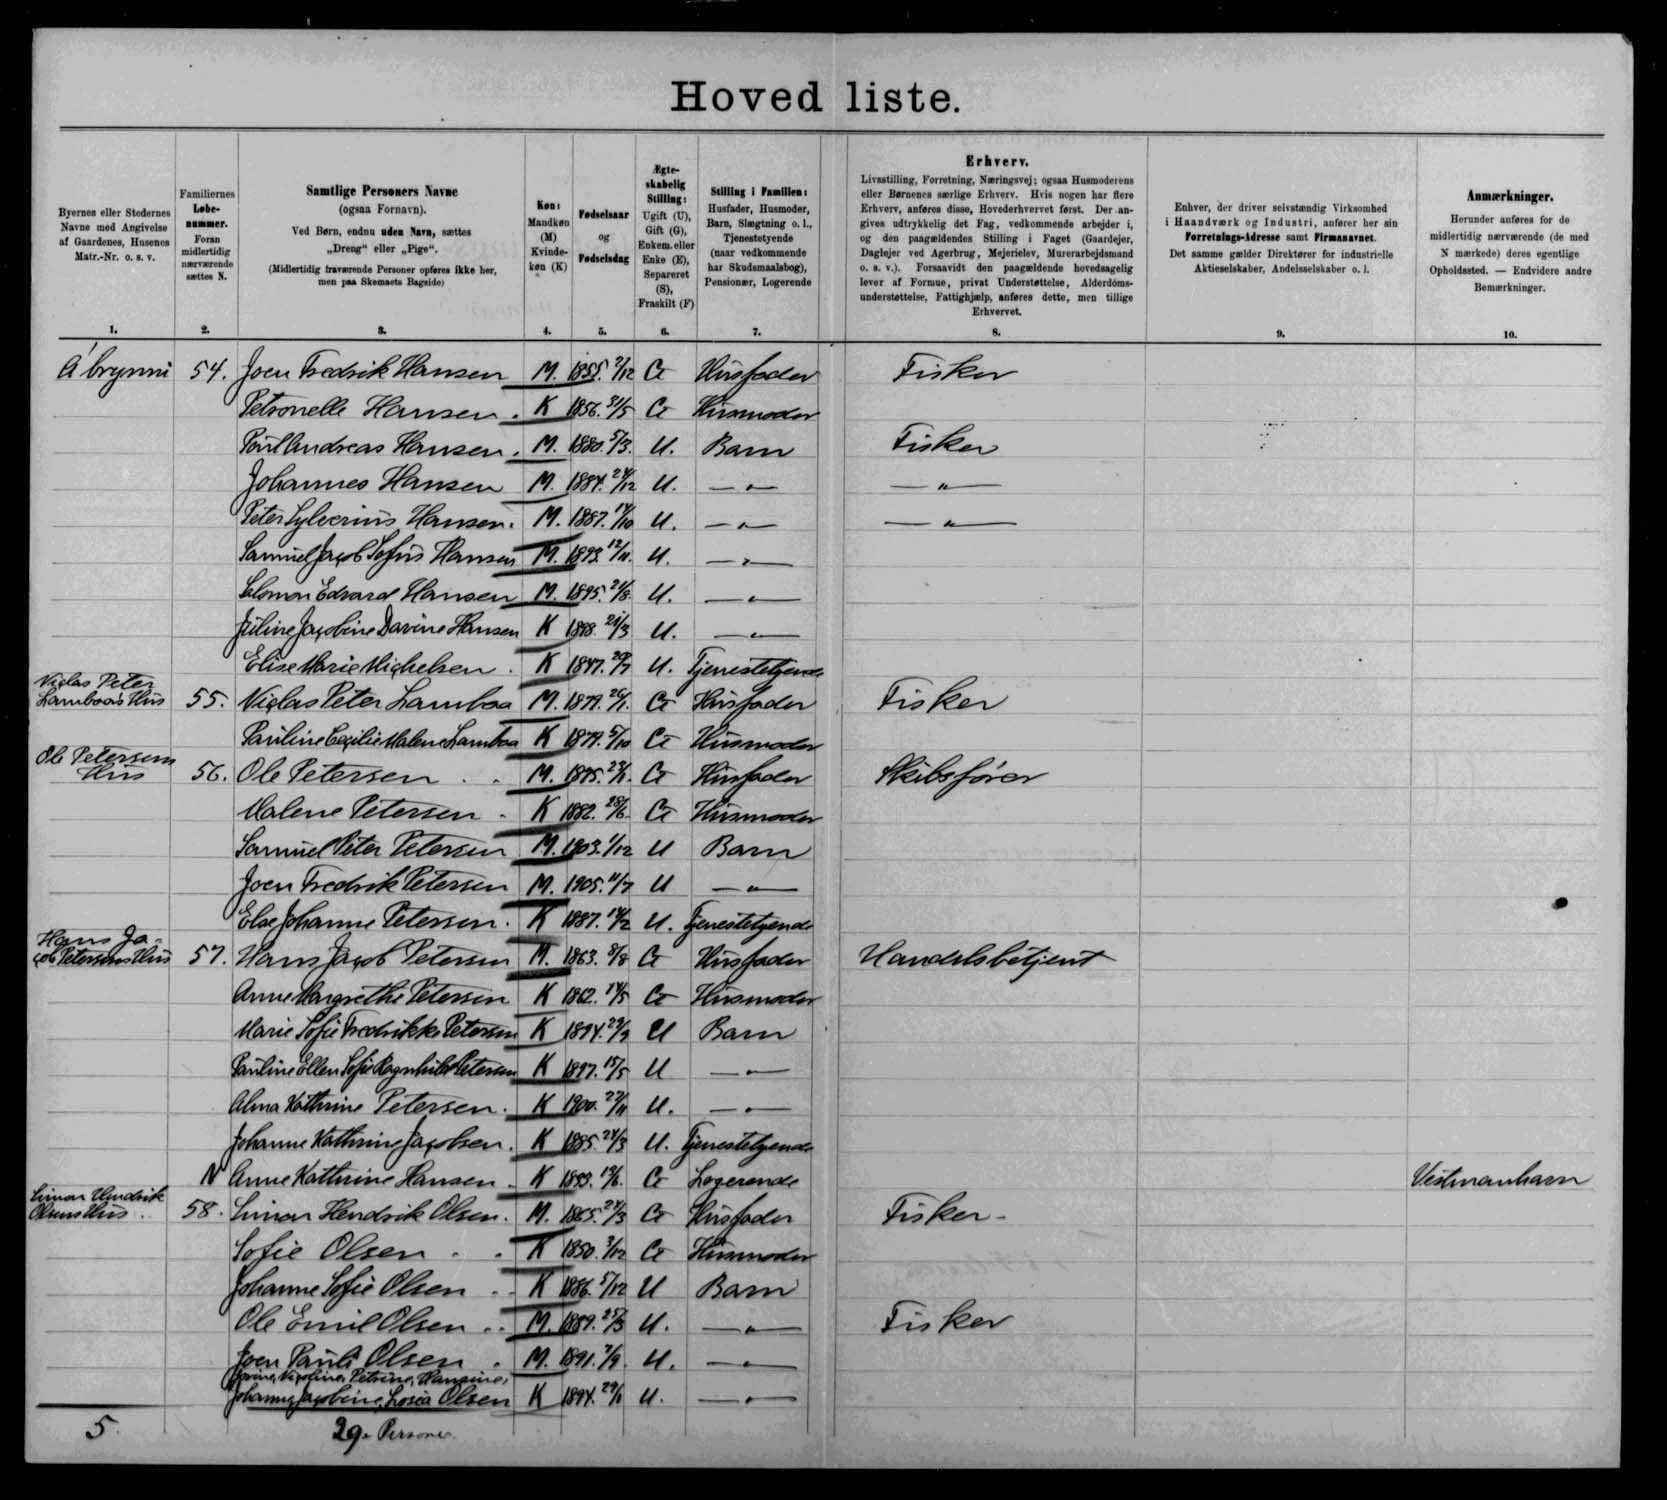 Hoved liste.
Byernes eller Stedernes Navne med Angivelse af Gaardenes, Husenes Matr.-Nr. o. s. v.
Familiernes Løbenummer. Foran midlertidig nærværende sættes N.
Samtlige Personers Navne (ogsaa Fornavn). Ved Børn, endnu uden Navn, sættes „Dreng" eller „Pige". (Midlertidig fraværende Personer opføres ikke her, men paa Skemaets Bagside)
Køn: Mandkøn (M) Kvindekøn (K)
Fødselsaar og Fødselsdag
Ægteskabelig Stilling: Ugift (U), Gift (G), Enkem. eller Enke (E), Separeret (S), Fraskilt (F)
Stilling i Familien: Husfader, Husmoder, Barn, Slægtning o. l., Tjenestetyende (naar vedkommende har Skudsmaalsbog), Pensionær, Logerende
Erhverv.
Livsstilling, Forretning, Næringsvej; ogsaa Husmoderens eller Børnenes særlige Erhverv. Hvis nogen har flere Erhverv, anføres disse, Hovederhvervet først. Der angives udtrykkelig det Fag, vedkommende arbejder i, og den paagældendes Stilling i Faget (Gaardejer, Daglejer ved Agerbrug, Mejerielev, Murerarbejdsmand o. s. v.). Forsaavidt den paagældende hovedsagelig lever af Formue, privat Understøttelse, Alderdomsunderstøttelse, Fattighjælp, anføres dette, men tillige Erhvervet.
Enhver, der driver selvstændig Virksomhed i Haandværk og Industri, anfører her sin Forretnings-Adresse samt Firmanavnet. Det samme gælder Direktører for industrielle Aktieselskaber, Andelsselskaber o. l.
Anmærkninger.
Herunder anføres for de midlertidig nærværende (de med N mærkede) deres egentlige Opholdssted. — Endvidere andre Bemærkninger.
1. 2. 3. 4. 5. 6. 7. 8. 9. 10.
Á brynni 54. Joen Fredrik Hansen M. 1855. 2/12 G Husfader Fisker
Petronelle Hansen . K 1856. 31/5 G Husmoder
Poul Andreas Hansen . M. 1880. 5/3. U. Barn Fisker
Johannes Hansen M. 1884. 24/12 U. — " — — " —
Peter Sylverius Hansen . M. 1887. 14/10 U. — " — — " —
Samuel Jacob Sofus Hansen M. 1893. 12/11. U. — " —
Salomon Edvard Hansen M. 1895. 21/8. U. — " —
Juline Jacobine Davine Hansen K 1898. 21/3 U. — " —
Elise Marie Michelsen . K 1847. 29/7 U. Tjenestetyende
Niclas Peter
Lamboa's Hus 55. Niclas Peter Lamboa M. 1879. 26/1. G Husfader Fisker
Pauline Cecilie Malene Lamboa K 1879. 5/10 G Husmoder
Ole Petersens
Hus 56. Ole Petersen . . M. 1875. 23/1. G Husfader Skibsfører
Malene Petersen . K 1882. 28/6. G Husmoder
Samuel Peter Petersen M. 1903. 1/12 U Barn
Joen Fredrik Petersen M. 1905. 11/7 U — " —
Else Johanne Petersen . K 1887. 14/2 U. Tjenestetyende
Hans Ja-
cob Petersens Hus 57. Hans Jacob Petersen M. 1863. 8/8 G Husfader Handelsbetjent
Anne Margrethe Petersen K 1862. 14/5 G Husmoder
Marie Sofie Fredrikke Petersen K 1894. 29/9 U Barn
Pauline Ellen Sofie Ragnhild Petersen K 1897. 15/5 U — " —
Alma Kathrine Petersen . K 1900. 27/11 U. — " —
Johanne Kathrine Jacobsen . K 1885. 24/3 U. Tjenestetyende
N Anne Kathrine Hansen . K G Logerende Vestmanhavn
Simon Hendrik
Olsens Hus . . 58. Simon Hendrik Olsen . M. 1865. 24/3 G Husfader Fisker
Sofie Olsen . . K 1850. 3/12 G Husmoder
Johanne Sofie Olsen . . K 1886. 5/12 U Barn
Ole Emil Olsen . . M. 1889. 25/3 U. — " — Fisker
Joen Pauli Olsen . M. 1891. 7/9. U. — " —
Nicoline, Petrine, Hansine,
Jacobine, Olsen K 1894. 29/1 U. — " —
5. 29. Personer.